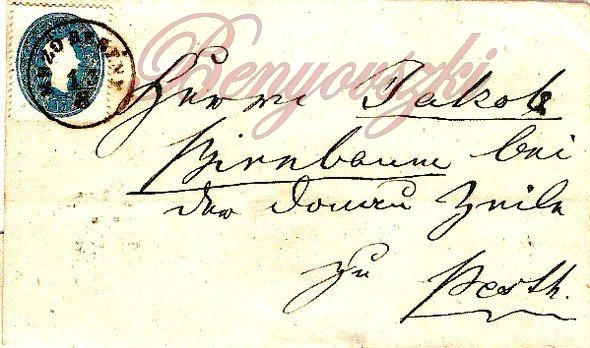 Benyovszki
Herrn Jakob
Birnbaum bei
der Donau Zeile
zu Pesth.